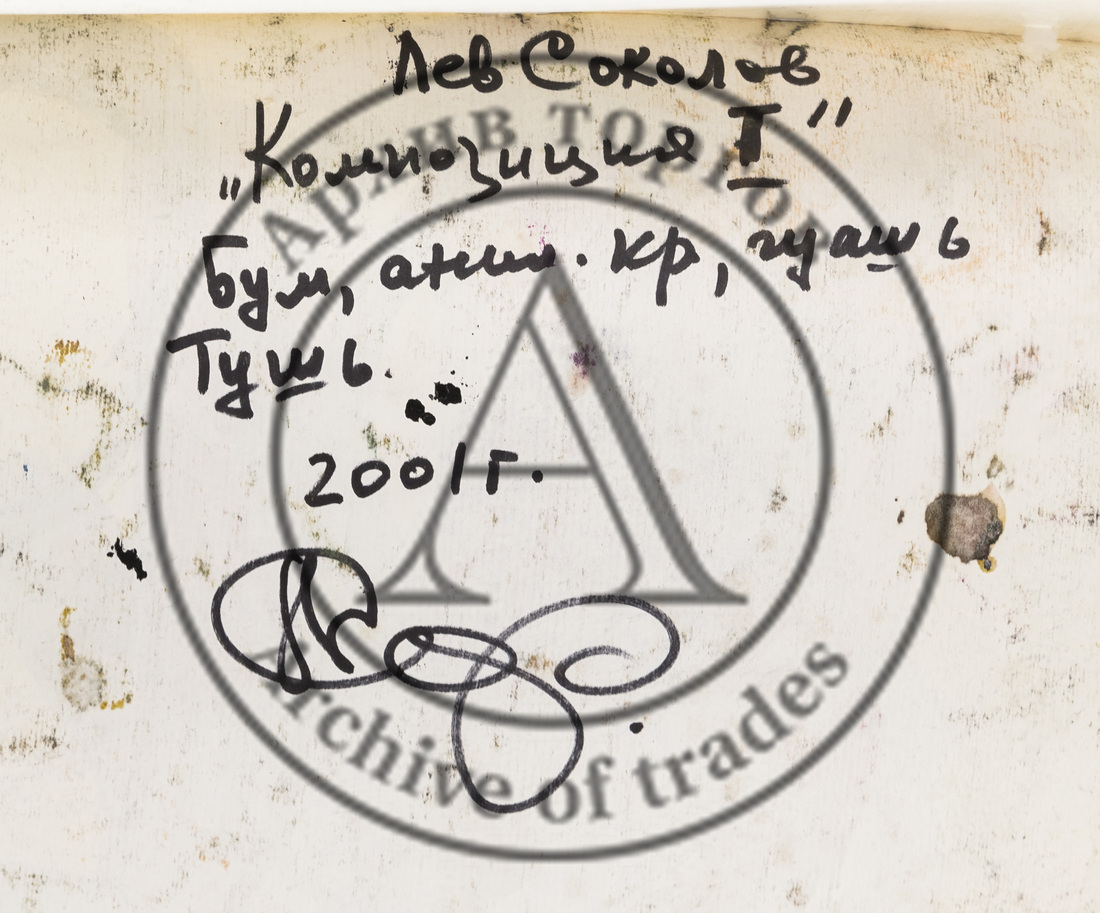 Лев Соколов
„Композиция I”
Бум, анил. кр, гуашь
Тушь.
2001г.
Архив торгов
Archive of trades